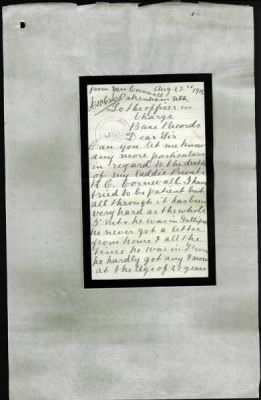 from Mrs Cornwall Aug 22nd
Pakenham Sth
To the officer in
Charge
Base Records
Dear Sir
Can you let me know
any more particulars
in regard to the death
of my laddie Private
H. C. Cornwall I have
tried to be patient but
all through it has been
very hard as the whole
he was in Gallipoli
he never got a letter
from home & all the
time he was in
he hardly got any
at the age of 21 years